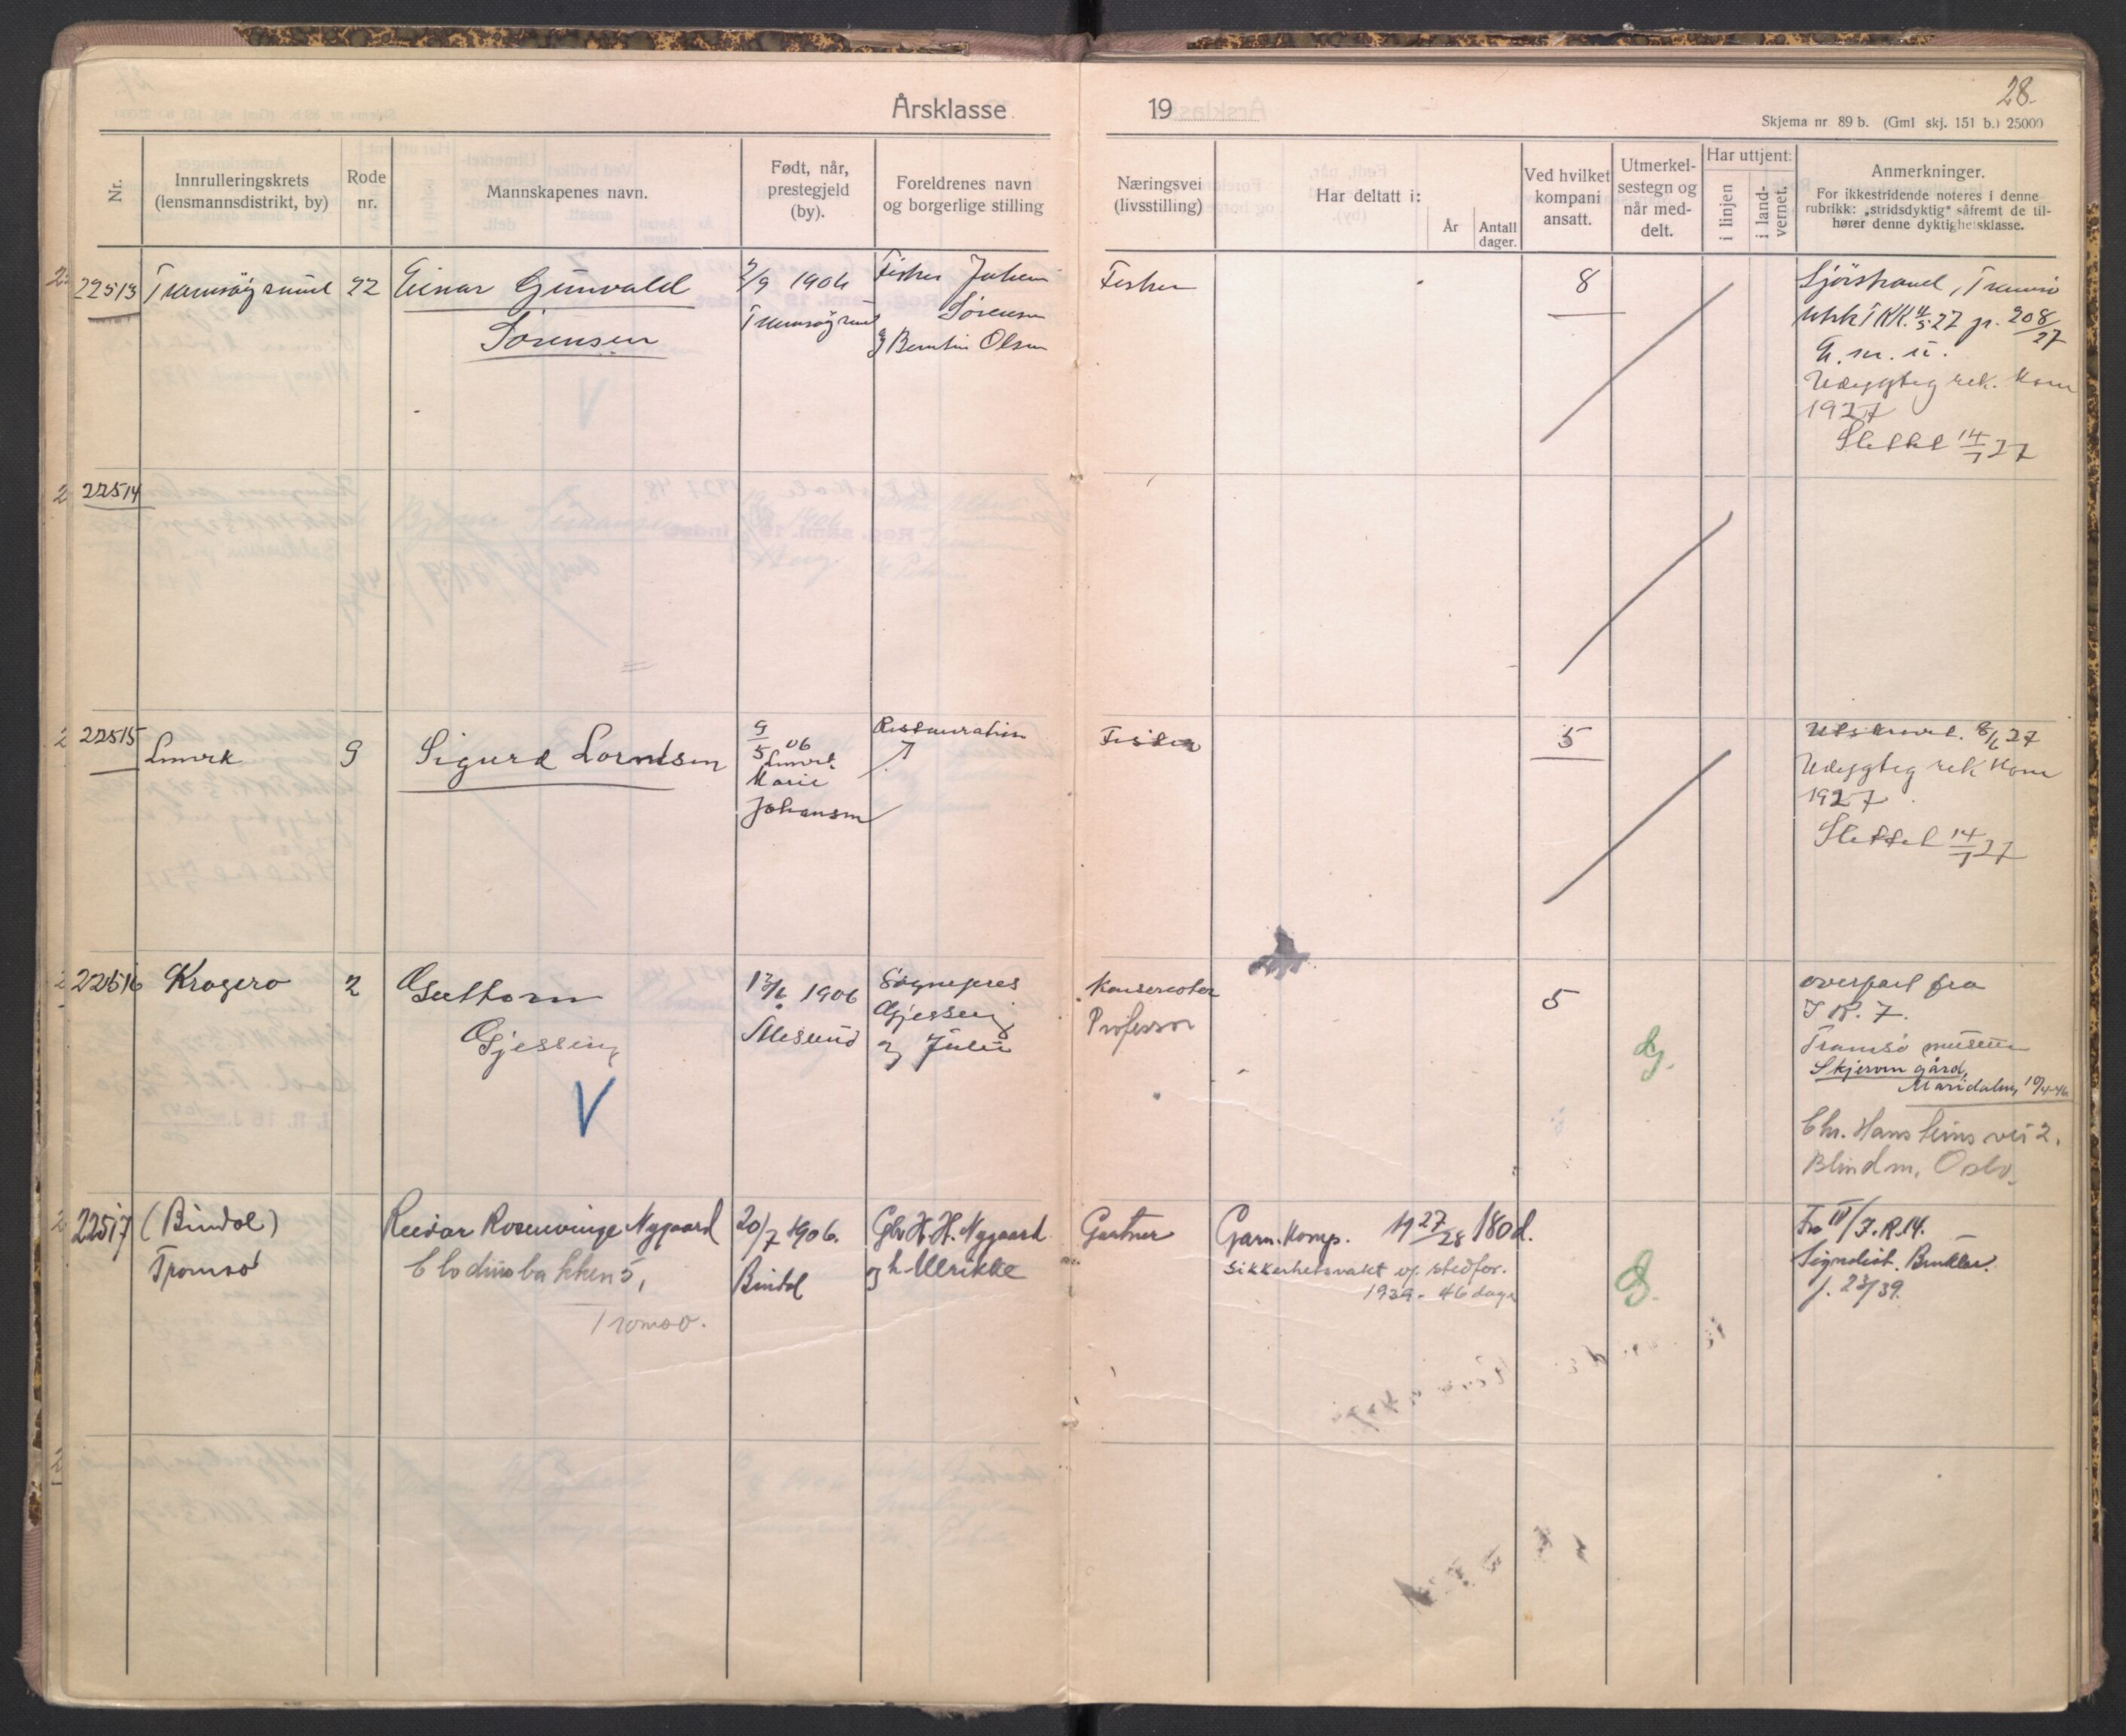 28.
Årsklasse
19
Skjema nr 89 b. (Gml skj. 151 b.) 25000
Nr.
Innrulleringskrets
(lensmannsdistrikt, by)
Rode
nr.
Mannskapenes navn.
Født, når,
prestegjeld
(by).
Foreldrenes navn
og borgerlige stilling
Næringsvei
(livsstilling)
Har deltatt i:
År
Antall
dager.
Ved hvilket
kompani
ansatt.
Utmerkel-
sestegn og
når med-
delt.
Har uttjent:
i linjen
i land-
vernet.
Anmerkninger.
For ikkestridende noteres i denne
rubrikk: „stridsdyktig" såfremt de til-
hører denne dyktighetsklasse.
22513
Tromsøysund
22
Einar Gunvald
Sørensen
/9 1904
Tromsøysund
Fisker Johan
Sørensen
og Olsen
Fisker
8
Sjøstrand, Tromsø
27 gr. 208/27
G. m. u.
Udygtig rek. kom
1927
Slettet 14/7 27
22514
22515
Lenvik
9
Sigurd Lorentsen
9/5 06
Lenvik
Marie
Johansen
Fisker
5
Utskrevet. 8/6 27
Udygtig rek kom
1927
Slettet 14/7 27
22516
Kragerø
2
Guttorm
Gjessing
V
1906
Ålesund
Sognepres
Gjessing
og Julie
Konservator
Professor
5
overført fra
I R. 7.
Tromsø museum
Skjerven gård,
Maridalen, 10/4-46.
Chr. Hansteins vei 2.
Blindern, Oslo.
22517
(Bindal)
Tromsø
Reidar Rosenvinge Nygaard
Clodiusbakken 5,
Tromsø.
20/7 1906.
Bindal
Gbr H. H. Nygaard
og h. Ulrikke
Gartner
Garn. komp. 19 27/28 180 d.
Sikkerhetsvakt og stedfor.
1939 - 46 dage
Fra IV/I.R.14.